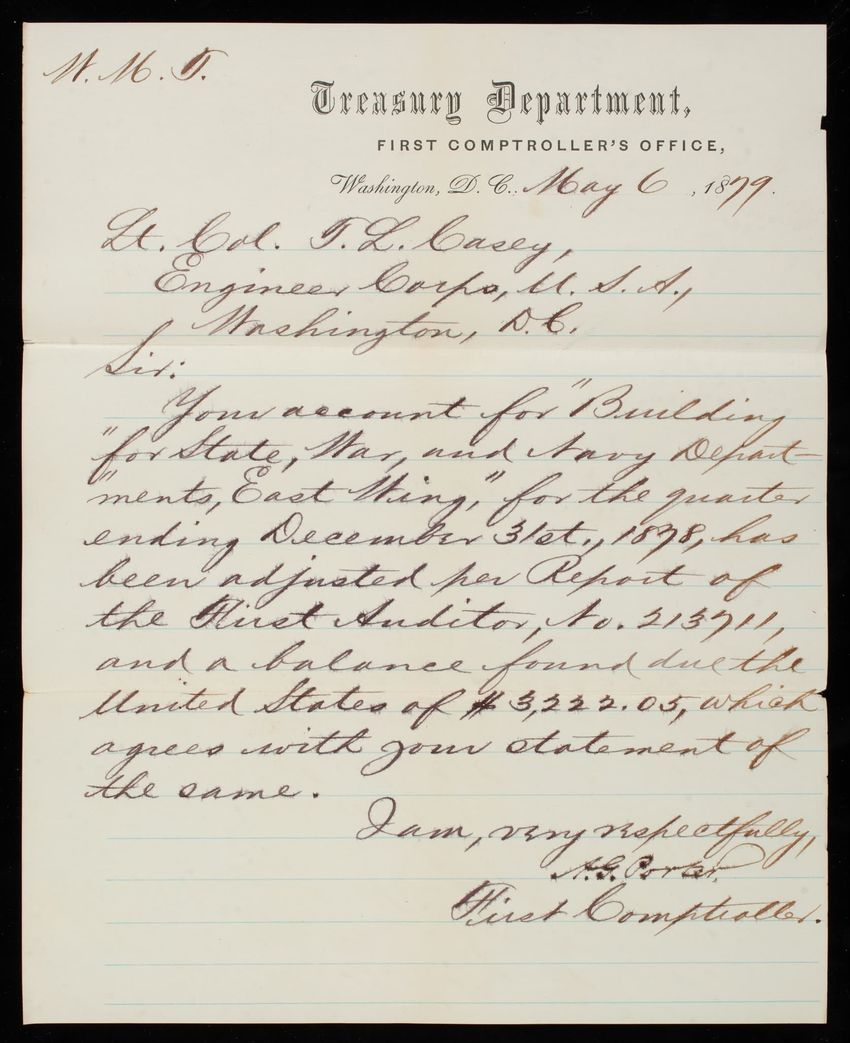 W. M. T.
Treasury Department,
FIRST COMPTROLLER'S OFFICE,
Washington, D. C., May 6, 1879.
Lt. Col. T. L. Casey,
Engineer Corps, U. S. A.,
Washington, D.C.
Sir:
Your account for "Building
"for State, War, and Navy Depart-
"ments, East Wing," for the quarter
ending December 31st., 1878, has
been adjusted per Report of
the First Auditor, No. 213711,
and a balance found due the
United States of $3,222.05, which
agrees with your statement of
the same.
I am, very respectfully,
A.G. Porter,
First Comptroller.